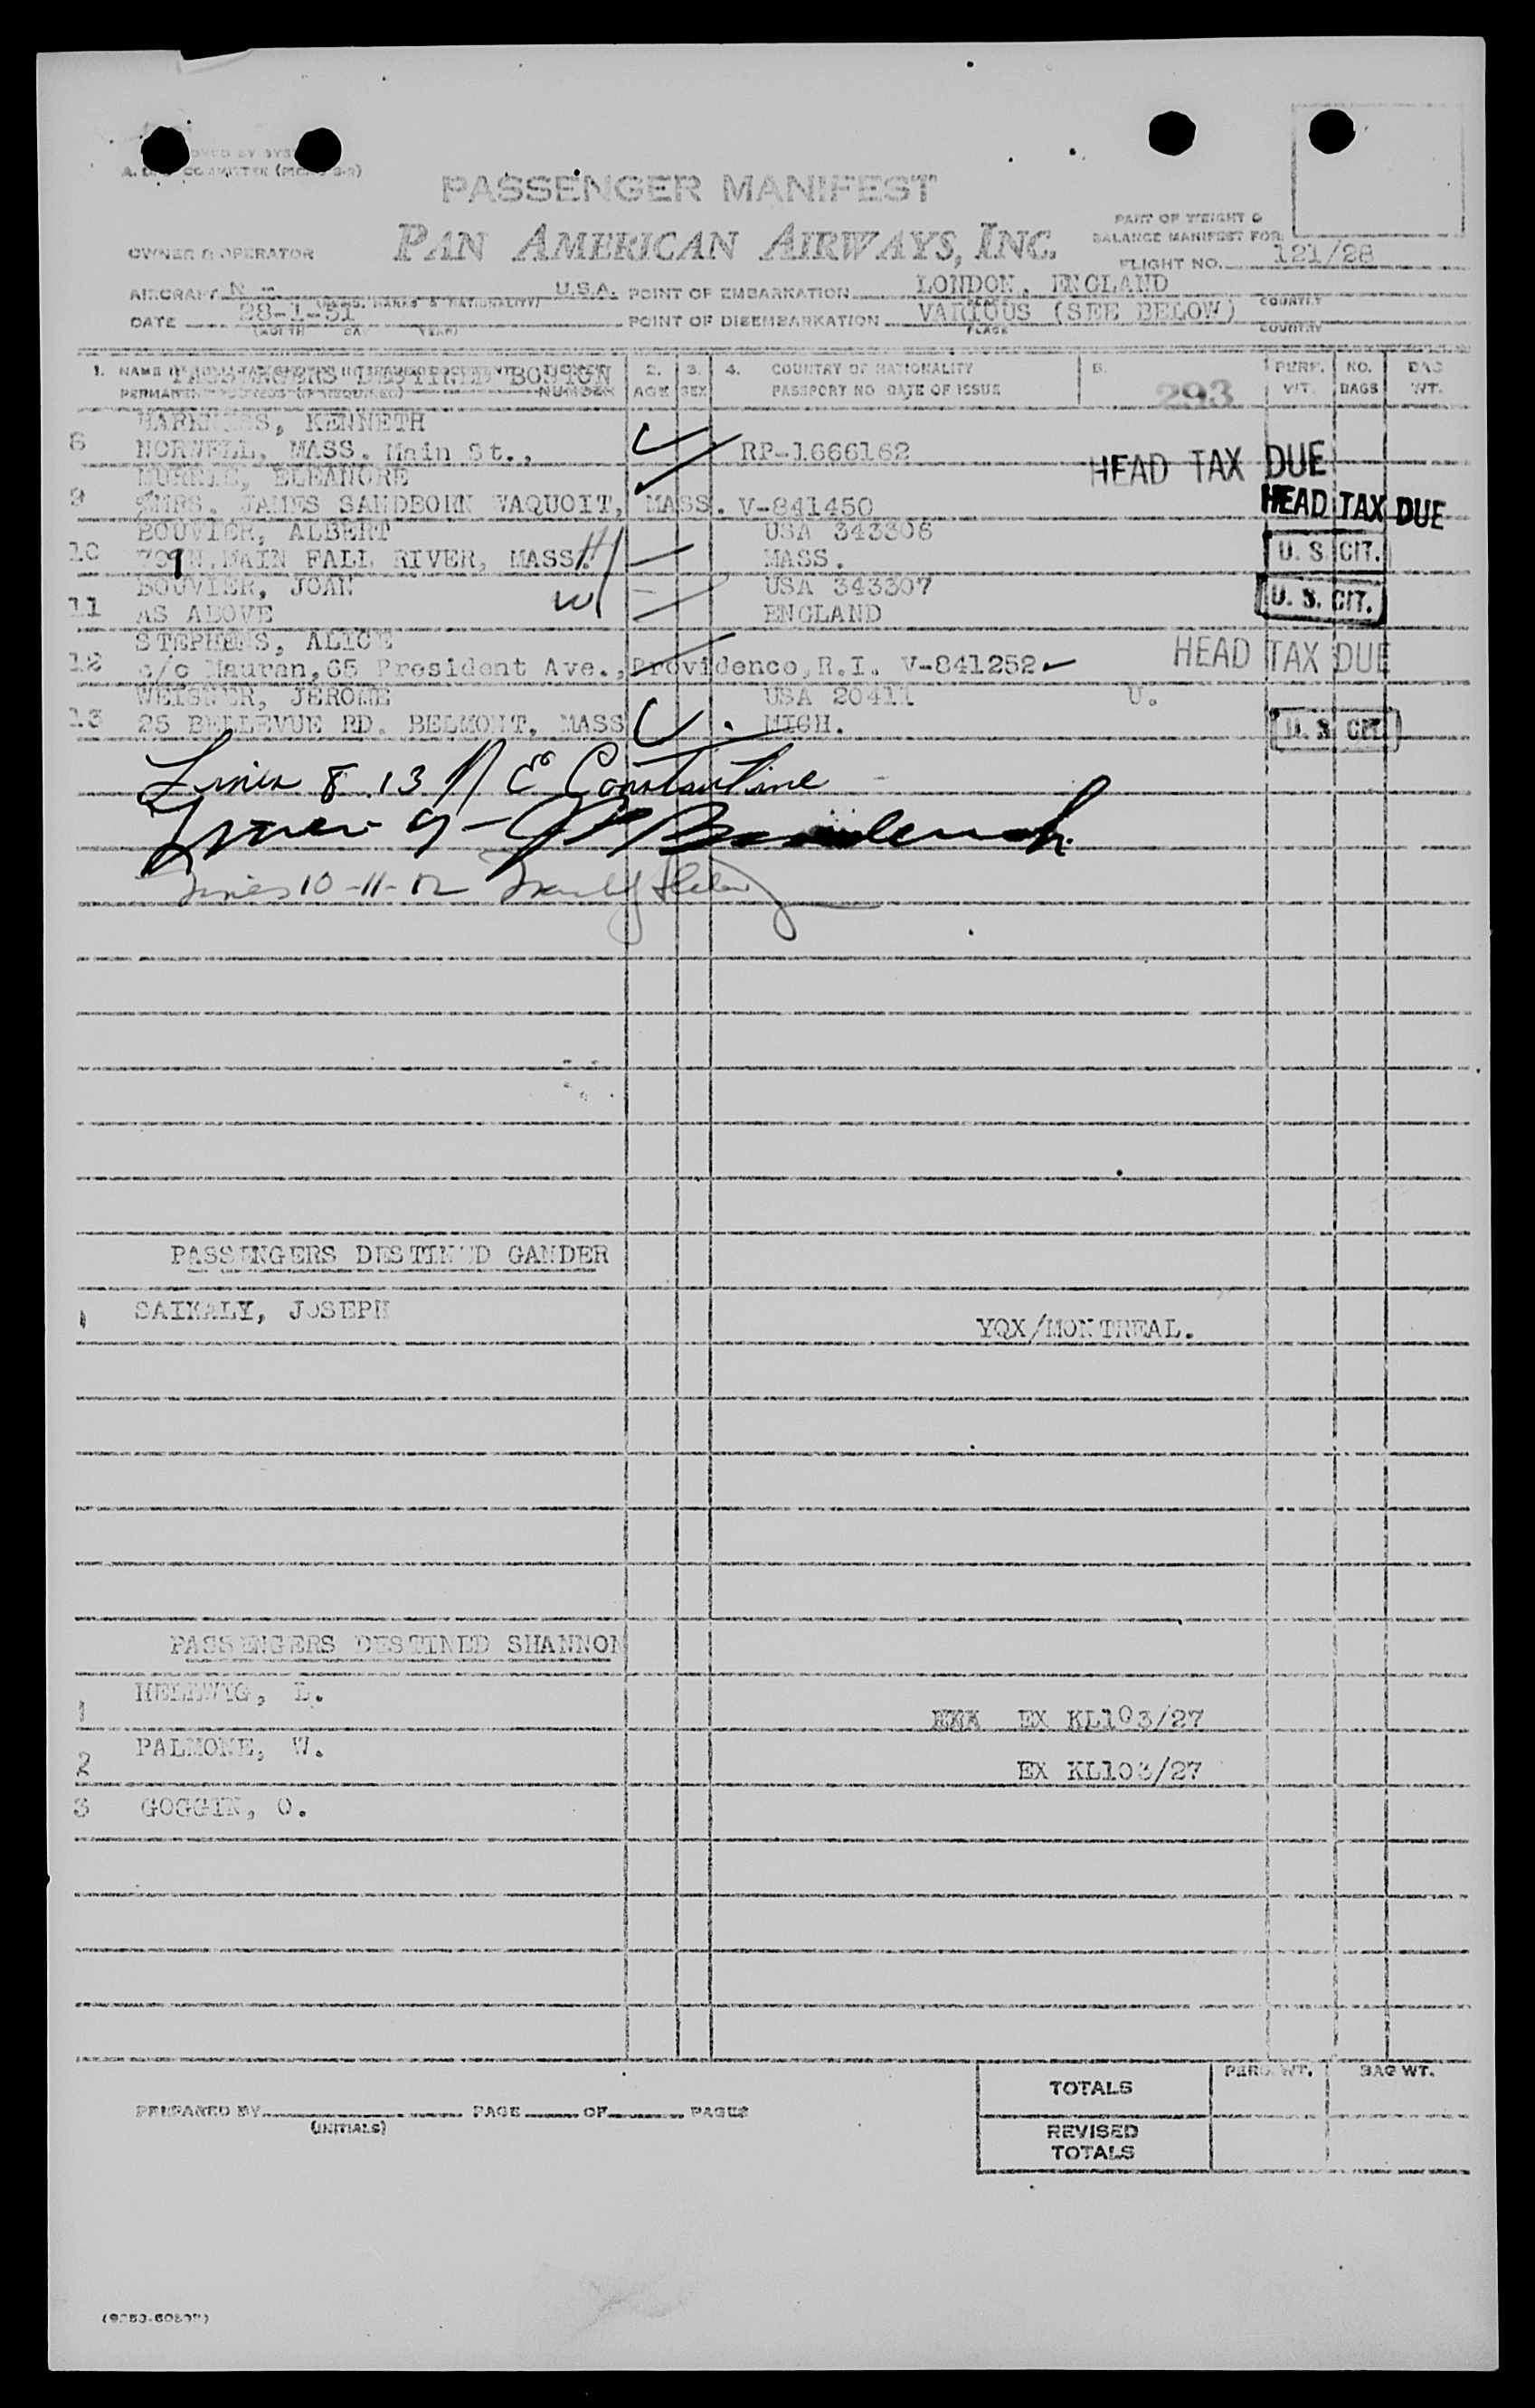 A. COMMITTEE
PASSENGER MANIFEST
PAN AMERICAN AIRWAYS, INC.
PART OF WEIGHT &
BALANCE MANIFEST FOR
OWNER OR OPERATOR
FLIGHT NO. 121/28
AIRCRAFT N - U.S.A. POINT OF EMBARKATION LONDON, ENGLAND
DATE 28-1-51 POINT OF DISEMBARKATION VARIOUS (SEE BELOW)
PLACE COUNTRY
PASSENGERS DESTINED BOSTON
1. NAME 2. AGE 3. SEX 4. COUNTRY OF NATIONALITY
PASSPORT NO DATE OF ISSUE
293
NO. BAGS
HARKNESS, KENNETH
8 NORWELL, MASS. Main St., RP-1666162 HEAD TAX DUE
ELEANORE
9 MRS. JAMES SANDBORN WAQUOIT, MASS. V-841450 HEAD TAX DUE
BOUVIER, ALBERT USA 343306
10 N. MAIN FALL RIVER, MASS. MASS. U. S. CIT.
BOUVIER, JOAN USA 343307
11 AS ABOVE ENGLAND U. S. CIT.
STEPHENS, ALICE
12 c/o Mauran, 65 President Ave., Providence, R.I. V-841252 HEAD TAX DUE
WEISNER, JEROME USA U.
13 25 BELLEVUE RD. BELMONT, MASS MICH. U. S. CIT.
Lines 8 13 E Constantine
Lines 9 -
Lines 10-11-12
PASSENGERS DESTINED GANDER
1 SAIKALY, JOSEPH
YQX/MONTREAL.
PASSENGERS DESTINED SHANNON
1 HELLWIG,
EX KL103/27
2 PALMONE, W.
EX KL103/27
3 GOGGIN, O.
TOTALS PERS. WT. BAG WT.
PREPARED BY PAGE OF PAGES
(INITIALS)
REVISED
TOTALS